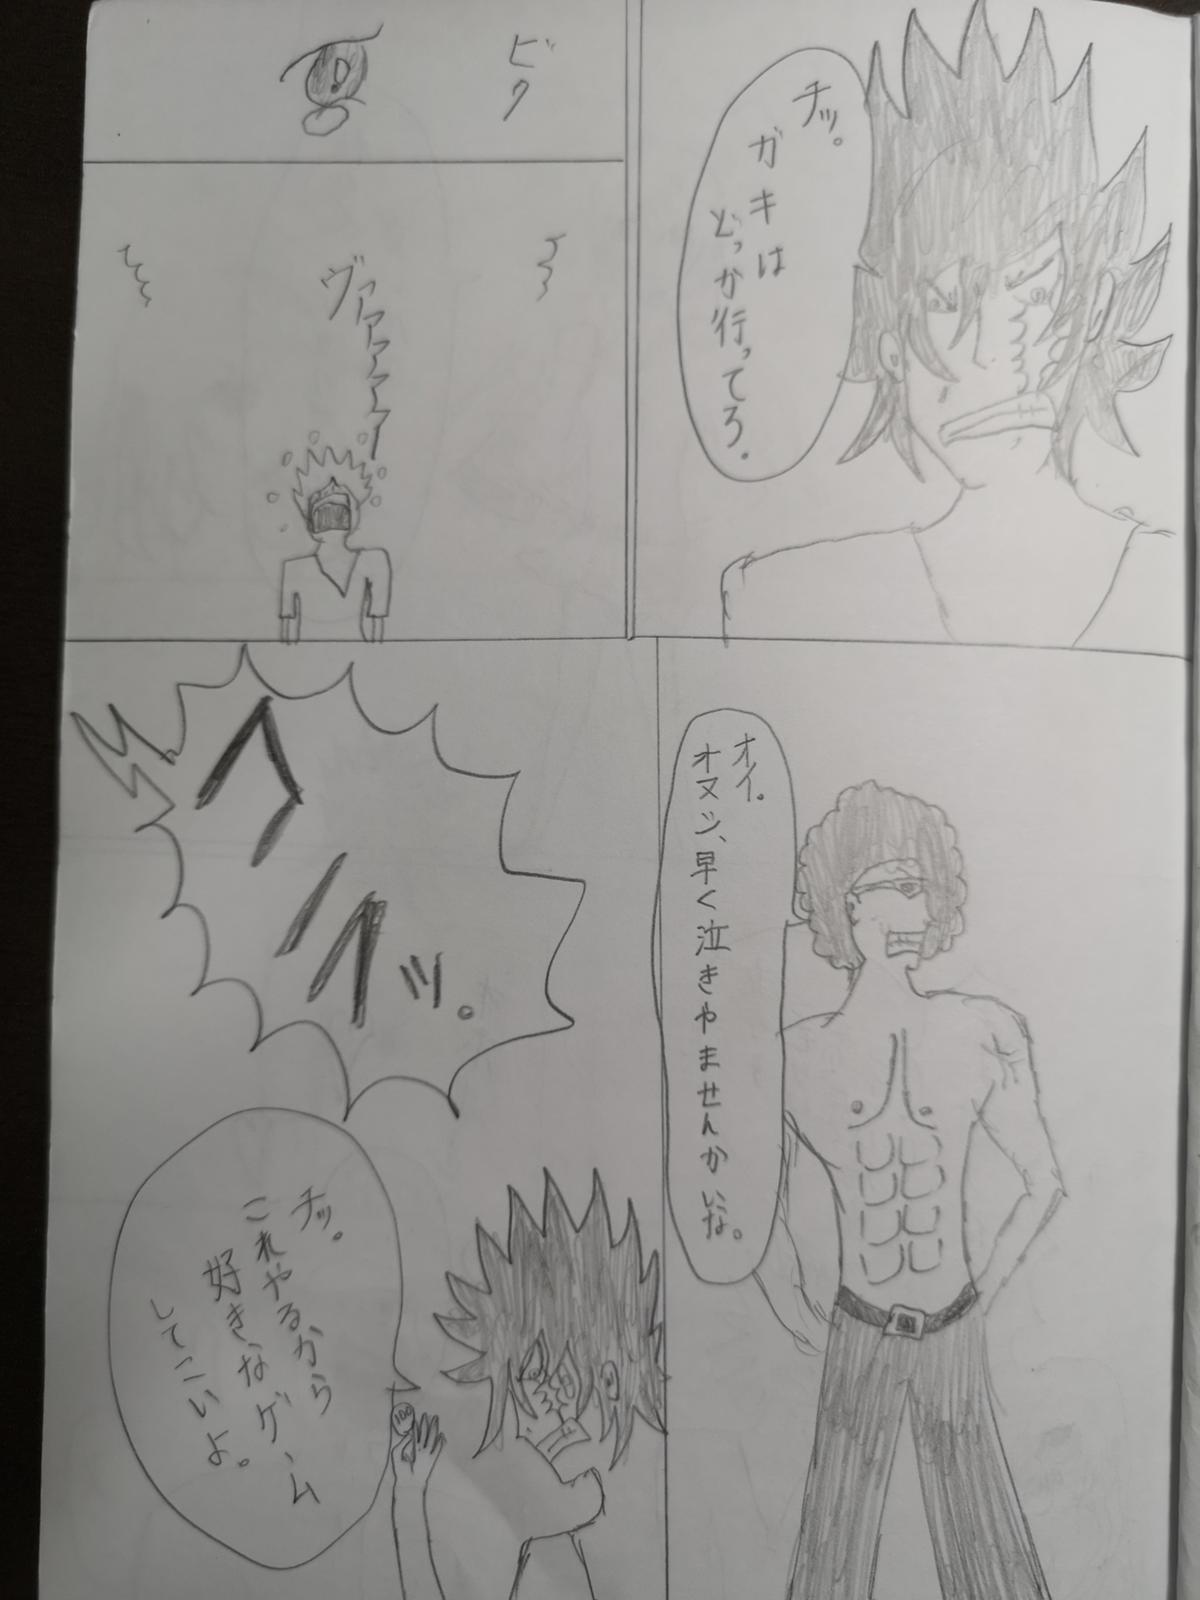 チッ。
ガキは
どっか行ってろ。
ビクッ
ヴァァァァァァ
オイ。
オヌシ、早く泣きやませんかいな。
ヘイッ。
チッ。
これやるから
好きなゲーム
してこいよ。
100